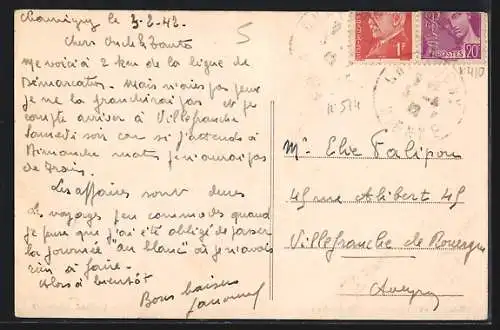 Chauvigny le 3-2-42
5
Chers Oncle & Tante
Me voici à 2 km de la ligne de
Démarcation. Mais n'aies pas peur
je ne la franchirai pas et je
compte arriver à Villefranche
Samedi soir car si j'attends à
Dimanche matin je n'aurai pas
de train.
Les affaires sont dures
et voyages peu commodes quand
je pense que j'ai été obligé de passer
la journée "au blanc" où je n'avais
rien à faire.
Alors à bientôt
Bons baisers
1F
POSTES 20c
Mr Elie Falipou
45 rue Alibert 45
Villefranche de Rouergue
Aveyron